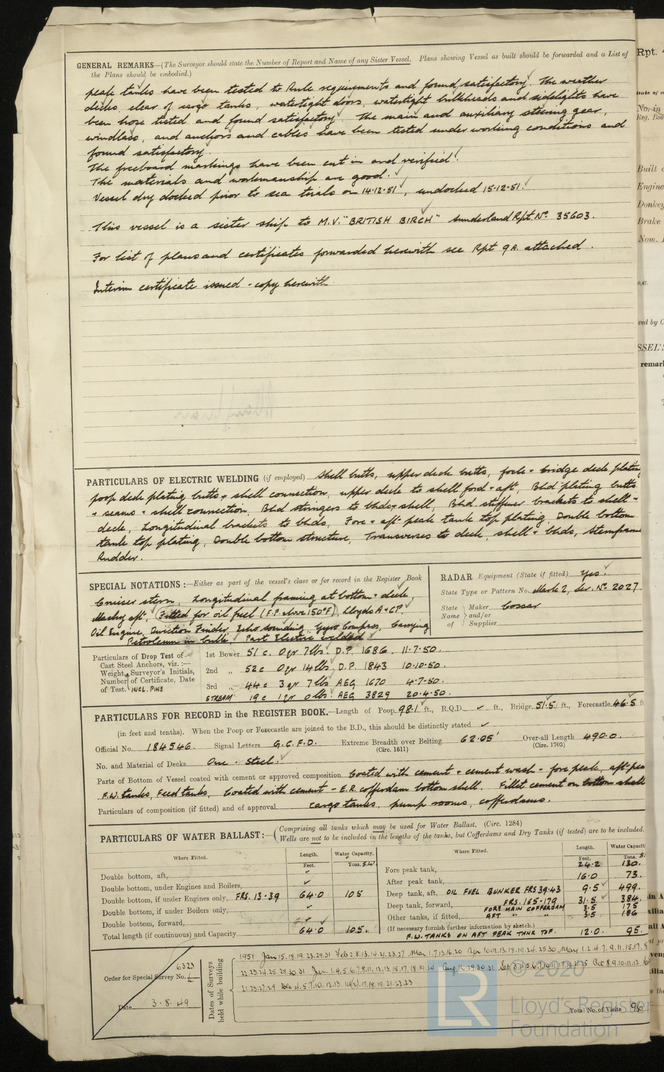 GENERAL REMARKS—(The Surveyor should state the Number of Report and Name of any Sister Vessel. Plans showing Vessel as built should be forwarded and a List of
the Plans should be embodied.)
peak tanks have been tested to Rule requirements and found satisfactory. The weather
decks, clear of cargo tanks, watertight doors, watertight bulkheads and sidelights have
been hose tested and found satisfactory. The main and auxiliary steering gear,
windlass, and anchors and cables have been tested under working conditions and
found satisfactory.
The freeboard markings have been cut in and verified.
The materials and workmanship are good.
Vessel dry docked prior to sea trials on 14-12-51, undocked 15-12-51.
This vessel is a sister ship to M.V. "BRITISH BIRCH" Sunderland Rpt No. 35603.
For list of plans and certificates forwarded herewith see Rpt 9A attached.
Interim certificate issued - copy herewith
PARTICULARS OF ELECTRIC WELDING (if employed) Shell butts, upper deck butts, fore + bridge deck plating
poop deck plating butts + shell connection, upper deck to shell ford + aft, Bhd plating butts
+ seams + shell connection, Bhd stringers to bhds + shell, Bhd stiffener brackets to shell +
deck, Longitudinal brackets to bhds, Fore + aft peak tank top plating, Double bottom
tank top plating, Double bottom structure, Transverses to deck, shell + bhds, Sternframe
Rudder.
SPECIAL NOTATIONS:—Either as part of the vessel's class or for record in the Register Book
Cruiser stern, Longitudinal framing at bottom + deck,
Machy aft, Fitted for oil fuel (F.P. above 150°F), Lloyds A + CP.
Oil Engine, Direction Finder, Echo sounding, Gyro Compass, Carrying
Petroleum in bulk. Part Electric Welded
RADAR Equipment (State if fitted) Yes.
State Type or Pattern No. Mark 2, Ser. No. 2027
State Name of Maker and/or Supplier Cossor
Particulars of Drop Test of Cast Steel Anchors, viz.:— Weight, Surveyor's Initials, Number of Certificate, Date of Test. INCL. PINS
1st Bower 51 c. 0 qr 7 lbs. D.P. 1686. 11-7-50.
2nd „ 52 c 0 qr 14 lbs D.P. 1843 10-10-50.
3rd „ 44 c 3 qr 7 lbs AEG 1670 4-7-50.
STREAM 19 c 1 qr 0 lbs AEG 3829 20-4-50.
PARTICULARS FOR RECORD in the REGISTER BOOK.—Length of Poop 98.1 ft., R.Q.D. ft., Bridge 51.5 ft., Forecastle 46.5 ft
(in feet and tenths). When the Poop or Forecastle are joined to the B.D., this should be distinctly stated
Official No. 184546. Signal Letters G.C.F.D. Extreme Breadth over Belting 62.05' Over-all Length 490.0
(Circ. 1611) (Circ. 1703)
No. and Material of Decks One - Steel.
Parts of Bottom of Vessel coated with cement or approved composition Coated with cement + cement wash - fore peak, aft pea
F.W. tanks, Feed tanks, Coated with cement - E.R. cofferdam bottom shell. Fillet cement on bottom shell
Particulars of composition (if fitted) and of approval cargo tanks, pump rooms, cofferdams.
PARTICULARS OF WATER BALLAST:— (Comprising all tanks which may be used for Water Ballast. (Circ. 1284)
Wells are not to be included in the lengths of the tanks, but Cofferdams and Dry Tanks (if tested) are to be included.
Where Fitted. Length. Feet. Water Capacity. Tons.
Double bottom, aft,
Double bottom, under Engines and Boilers,
Double bottom, if under Engines only, FRS. 13-39 64.0 105
Double bottom, if under Boilers only,
Double bottom, forward,
Total length (if continuous) and Capacity 64.0 105.
Where Fitted. Length. Feet. Water Capacity. Tons.
Fore peak tank, 24.2 130.
After peak tank, 16.0 73.
Deep tank, aft, OIL FUEL BUNKER FRS 39-43 9.5 499.
Deep tank, forward, FRS. 165-179 31.5 384.
FORE MAIN COFFERDAM 3.5 175
Other tanks, if fitted, AFT „ „ 3.5 186
(If necessary furnish further information by sketch.)
F.W. TANKS ON AFT PEAK TANK TOP. 12.0 95.
Order for Special Survey No. 6323
Date 3.8.49
Dates of Surveys held while building
Total No. of Visits 96
© 2020
Lloyd's Register
Foundation
LR
Rpt.